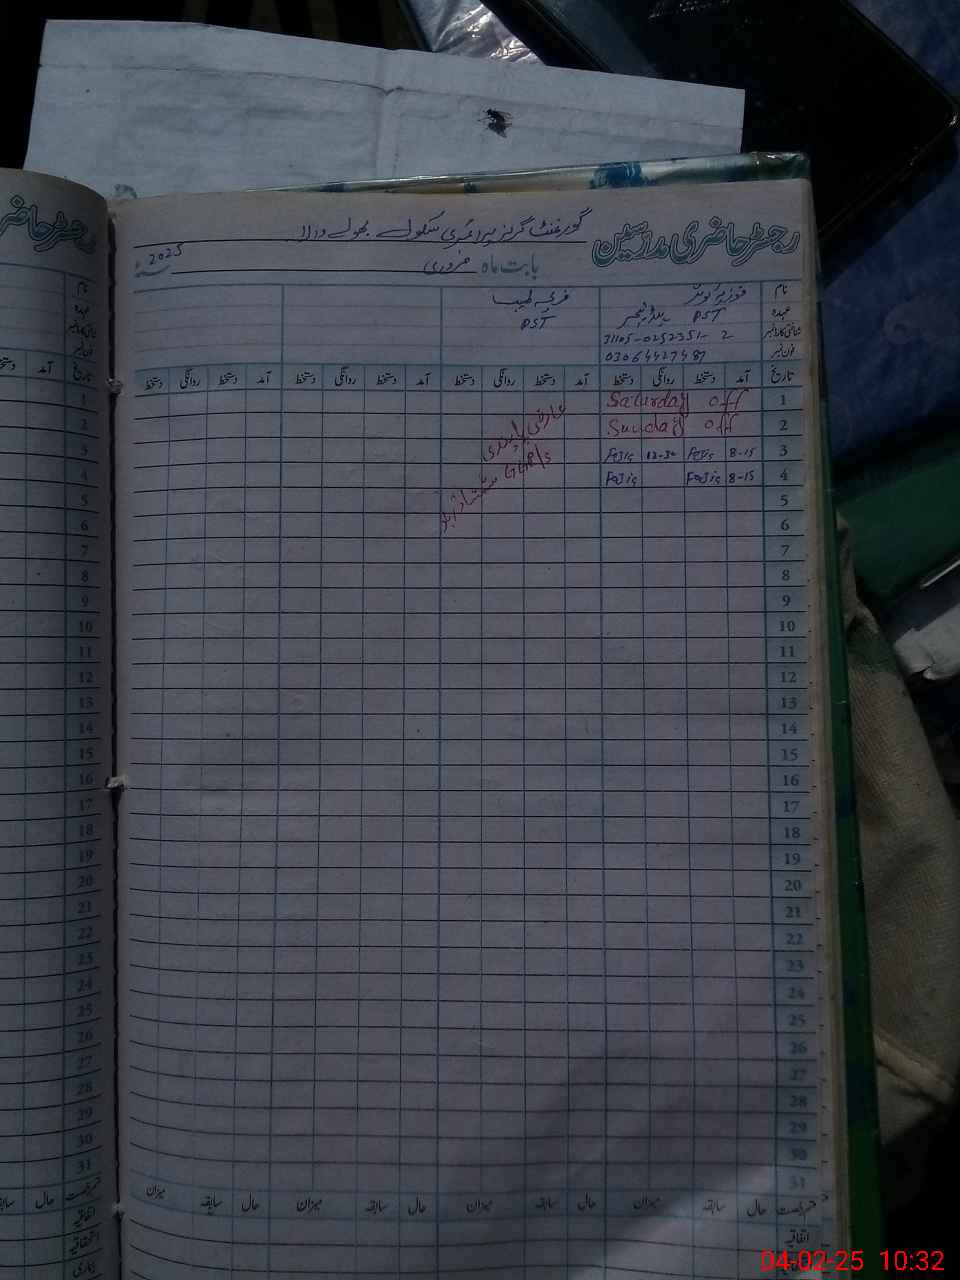 رجسٹر حاضری مدرسین گورنمنٹ گرلز پرائمری سکول بھولے والا
بابت ماہ فروری 2025ء
نام فوزیہ
عہدہ PST ہیڈ ٹیچر PST
شناختی کارڈ نمبر 31105-0252351-2
فون نمبر 03064427487
تاریخ آمد دستخط روانگی دستخط آمد دستخط روانگی دستخط آمد دستخط روانگی دستخط آمد دستخط روانگی دستخط
1 Saturday off
2 Sunday off
3 8-15 12-30
4 8-15
عارضی
GGP/S
5
6
7
8
9
10
11
12
13
14
15
16
17
18
19
20
21
22
23
24
25
26
27
28
29
30
31
حال سابقہ میزان حال سابقہ میزان حال سابقہ میزان حال سابقہ میزان
اتفاقیہ
رجسٹر حاضر
نام
عہدہ
شناختی کارڈ نمبر
فون نمبر
تاریخ آمد
1
2
3
4
5
6
7
8
9
10
11
12
13
14
15
16
17
18
19
20
21
22
23
24
25
26
27
28
29
30
31
حال
اتفاقیہ
استحقاقیہ
بیماری
04-02-25 10:32